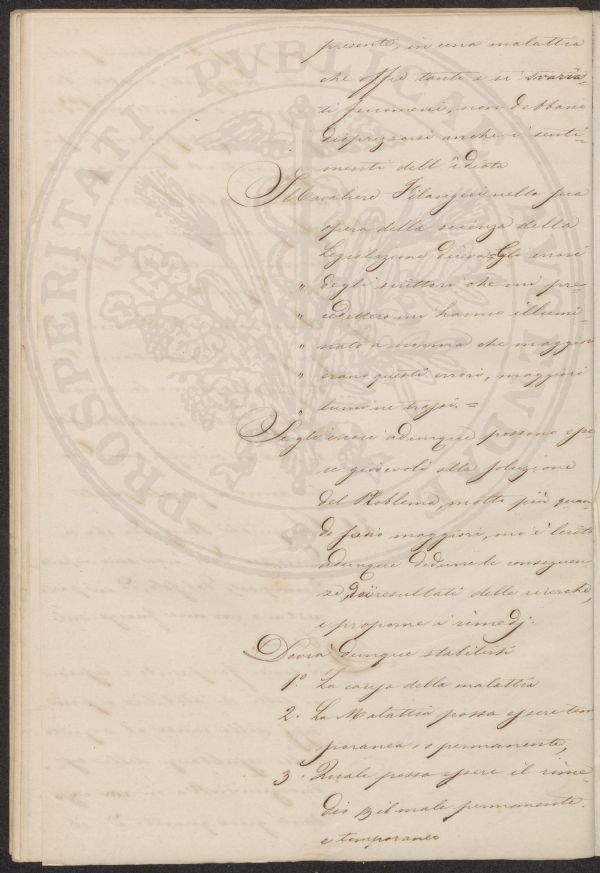 presente, in una malattia
che offre tanti e sì svaria-
ti fenomeni, non debbano
disprezzarsi anche i senti-
menti dell'idiota
Il Cavaliere Filangieri nella sua
opera della scienza della
Legislazione diceva = Gli errori
" degli scrittori che mi pre-
" cedettero mi hanno illumi-
" nato a misura che maggiori
" erano questi errori, maggiori
" lumi ne trassi. =
Se gli errori adunque possono esse-
re giovevoli alla soluzione
del Problema, molto più quan-
do fossero maggiori, mi è lecito
adunque dedurre le conseguen-
ze, dai resultati delle ricerche,
e proporne i rimedj.
Dovrà dunque stabilirsi
1.º La causa della malattia
2. La Malattia possa essere tem-
poranea o permanente,
3. Quale possa essere il rime-
dio il male permanente
e temporaneo
PROSPERITATI PVBLICAE AVGENDAE